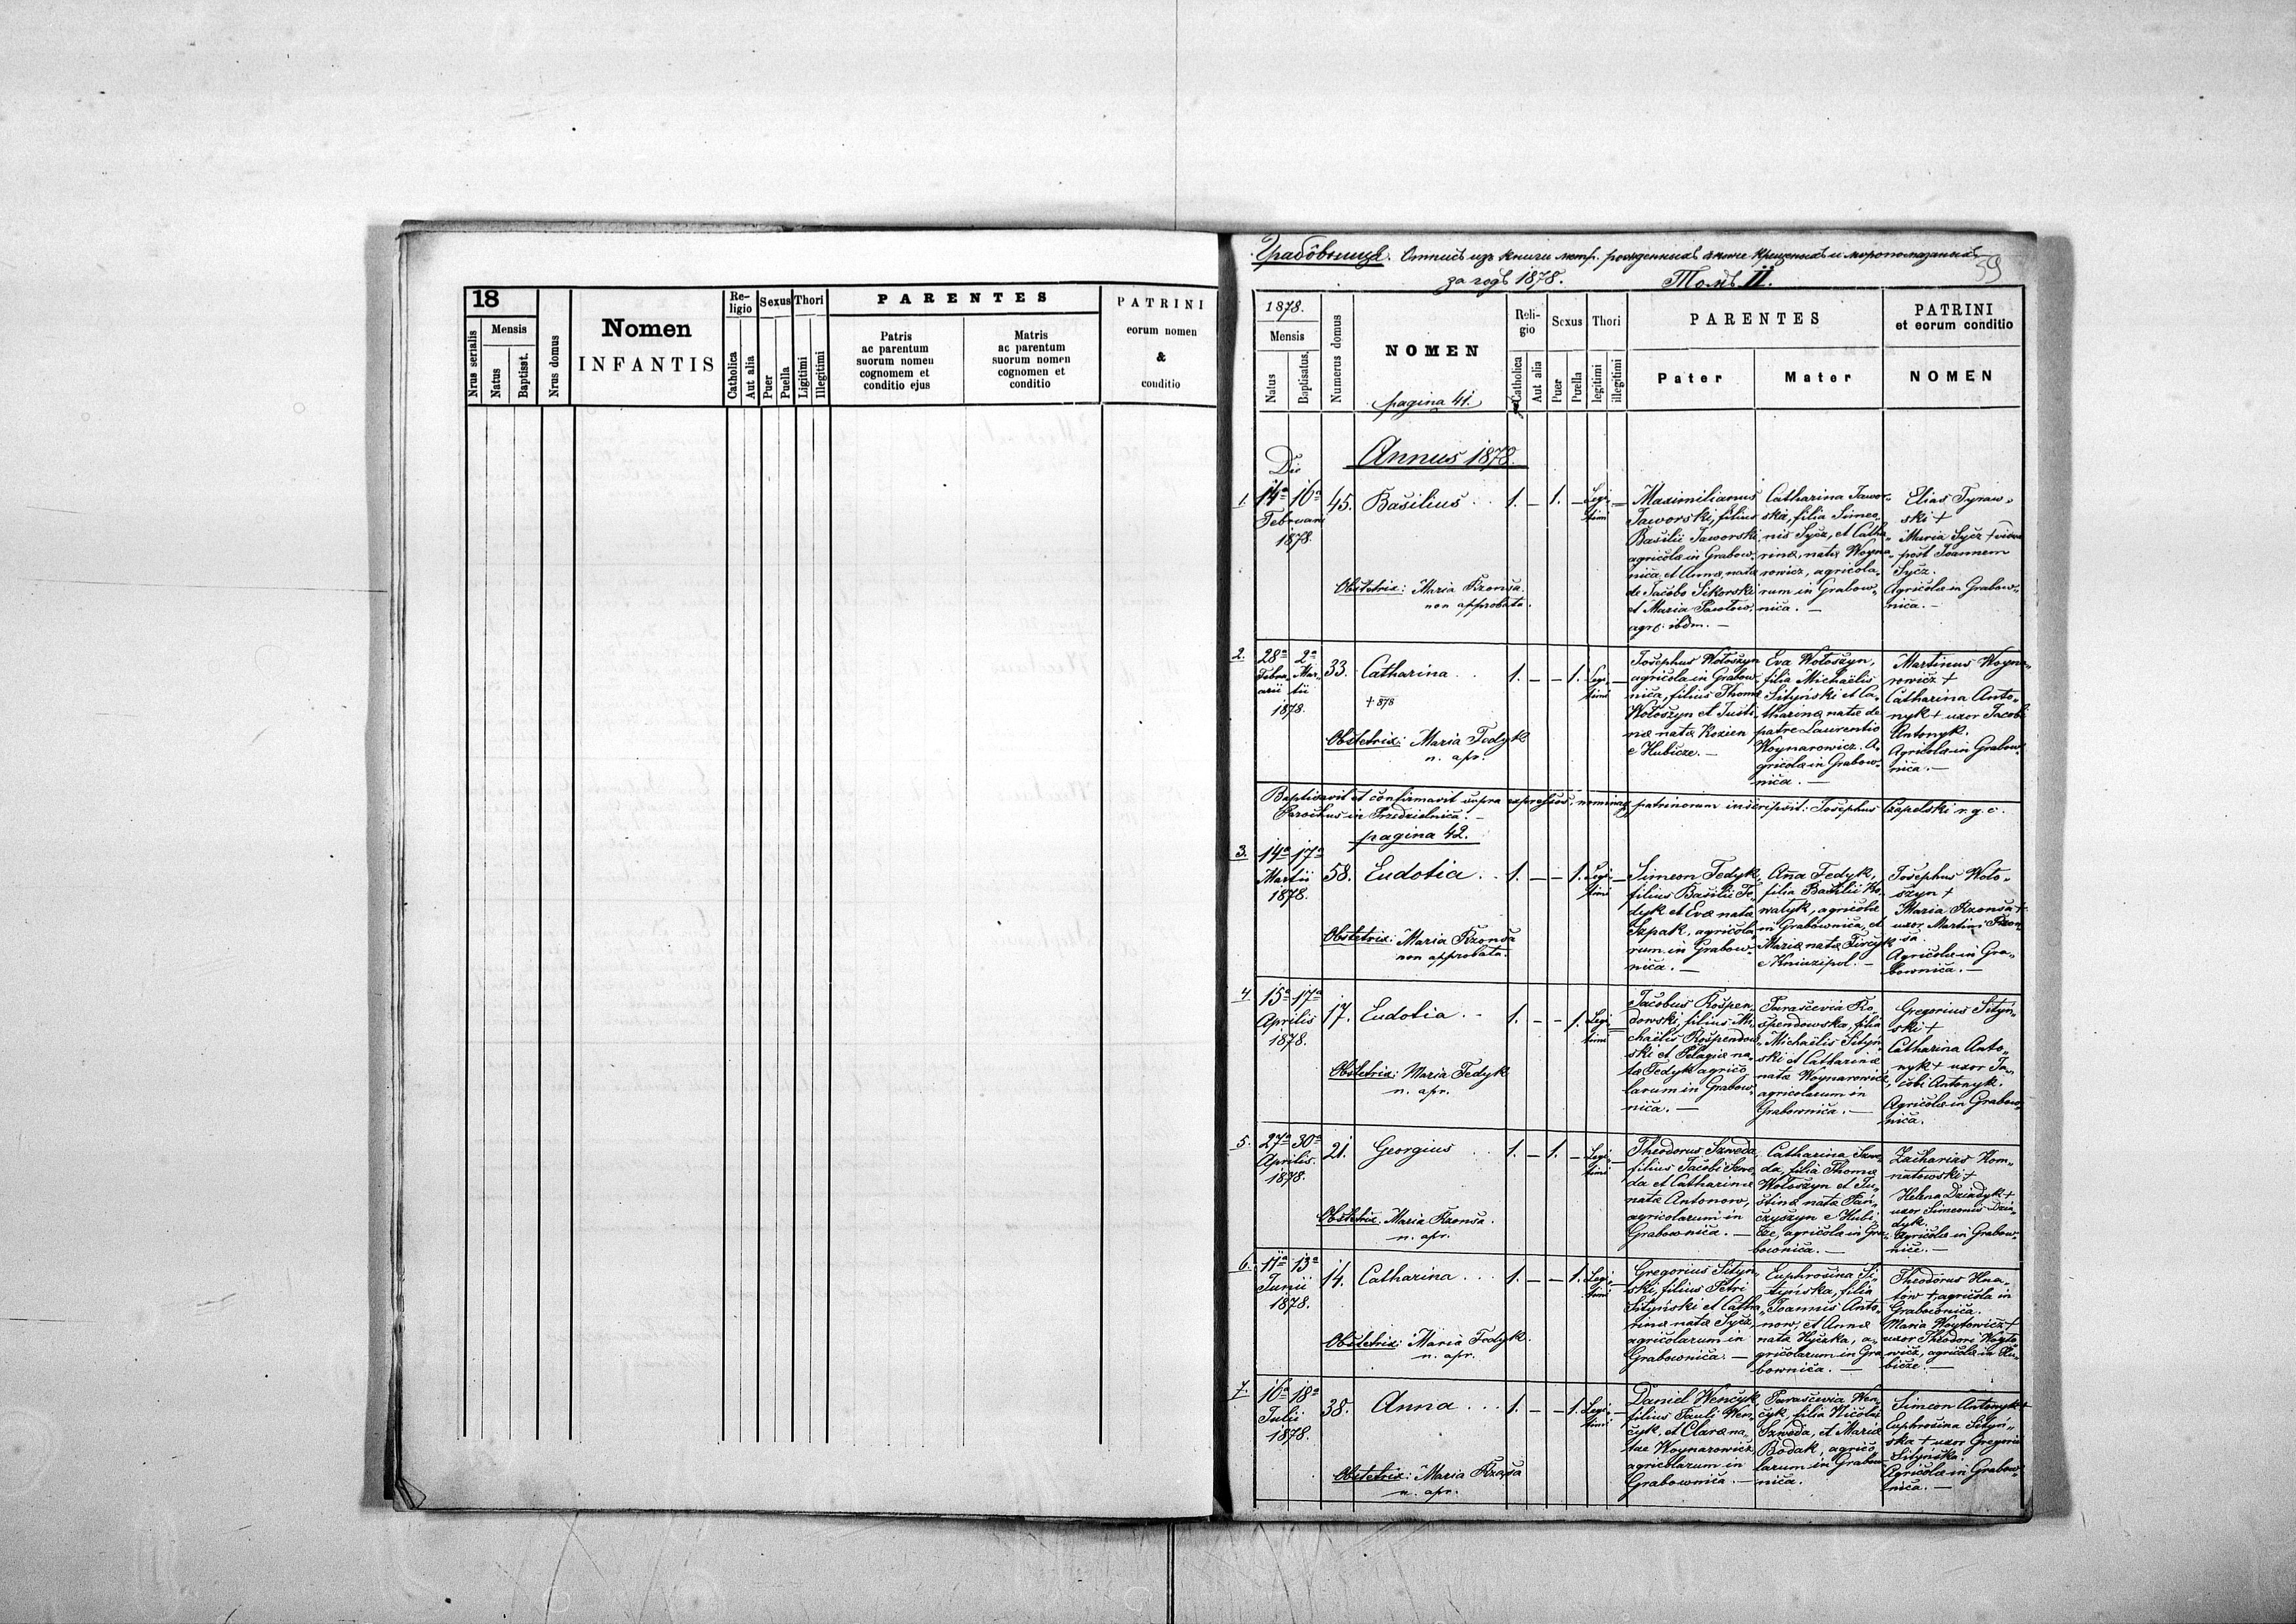 18
Nrus serialis
Mensis
Natus
Baptisat.
Nrus domus
Nomen
INFANTIS
Re-
ligio
Catholica
Aut alia
Sexus
Puer
Puella
Thori
Ligitimi
Illegitimi
PARENTES
Patris
ac parentum
suorum nomen
cognomem et
conditio ejus
Matris
ac parentum
suorum nomen
cognomen et
conditio
PATRINI
eorum nomen
&
conditio
Грабôвница. Отписъ изъ книги метр. рожденныхъ крещеныхъ и миропомазаныхъ
за годъ 1878. Томъ II.
59
1878.
Mensis
Natus
Baptisatus
Numerus domus
NOMEN
pagina 41.
Reli-
gio
Catholica
Aut alia
Sexus
Puer
Puella
Thori
legitimi
illegitimi
PARENTES
Pater
Mater
PATRINI
et eorum conditio
NOMEN
Annus 1878.
Die
1.
14a 16a
Februarii
1878.
45.
Basilius
1. – 1. –
Legi-
timi
Obstetrix: Maria Kzonsa
non approbata.
Maximilianus
Jaworski, filius
Basilii Jaworski
agricola in Grabow-
nica, et Anna nata
de Jacobo Sikorski
et Maria Pawlow,
agr: ibdm. –
Catharina Jawor-
ska, filia Simeo-
nis Sycz, et Catha-
rinæ, natæ Woyna-
rowicz, agricola-
rum in Grabow-
nica. –
Elias Tyraw-
ski +
Maria Sycz + vidua
post Joannem
Sycz.
Agricolæ in Grabow-
nica. –
2.
28a 2a
Febru- Mar-
arii tii
1878.
33.
Catharina
+ 878
1. – – 1.
Legi-
timi
Obstetrix: Maria Fedyk
n. apr.
Josephus Wołoszyn
agricola in Grabow-
nica, filius Thomæ
Wołoszyn et Justi-
næ natæ Kozien
e Hubicze. –
Eva Wołoszyn,
filia Michaëlis
Sityński et Ca-
tharinæ natæ de
patre Laurentio
Woynarowicz. A-
gricolæ in Grabow-
nica. –
Martinus Woyna-
rowicz +
Catharina Anto-
nyk + uxor Jacobi
Antonyk.
Agricolæ in Grabow-
nica. –
Baptisavit et confirmavit supra expressos, nominaq patrinorum inscripsit: Josephus Czapelski r. g. c.
Parochus in Przedzielnica. –
pagina 42.
3.
14a 17a
Martii
1878.
58.
Eudotia
1. – – 1.
Legi-
timi
Obstetrix: Maria Kzonsa
non approbata.
Simeon Fedyk,
filius Basilii Fe-
dyk et Evæ natæ
Szpak, agricola-
rum in Grabow-
nica. –
Anna Fedyk,
filia Basilii Ko-
watyk, agricolæ
in Grabownica, et
Mariæ natæ Fircyk
e Kniazipol. –
Josephus Woło-
szyn +
Maria Kzonsa +
uxor Martini Kzon-
sa.
Agricolæ in Gra-
bownica. –
4.
15a 17a
Aprilis
1878.
17.
Eudotia
1. – – 1.
Legi-
timi
Obstetrix: Maria Fedyk
n. apr.
Jacobus Rospen-
dowski, filius Mi-
chaëlis Rospendow-
ski et Pelagiæ na-
tæ Fedyk agrico-
larum in Grabow-
nica. –
Parascevia Ro-
spendowska, filia
Michaëlis Sityn-
ski et Catharinæ
natæ Woynarowicz,
agricolarum in
Grabownica. –
Gregorius Sityń-
ski +
Catharina Anto-
nyk + uxor Ja-
cobi Antonyk.
Agricolæ in Grabow-
nica.
5.
27a 30a
Aprilis
1878.
21.
Georgius
1. – 1. –
Legi-
timi
Obstetrix: Maria Kzonsa.
n. apr.
Theodorus Szweda,
filius Jacobi Szwe-
da et Catharinæ
natæ Antonow,
agricolarum in
Grabownica. –
Catharina Szwe-
da, filia Thomæ
Wołoszyn et Ju-
stinæ natæ Pań-
czyszyn e Hubi-
cze, agricolæ in Gra-
bownica. –
Zacharias Kom-
natowski +
Helena Dziadyk +
uxor Simeonis Dzia-
dyk.
Agricolæ in Grabow-
nice. –
6.
11a 13a
Junii
1878.
14.
Catharina
1. – – 1.
Legi-
timi
Obstetrix: Maria Fedyk.
n. apr.
Gregorius Sityn-
ski, filius Petri
Sityński et Catha-
rinæ natæ Sycz,
agricolarum in
Grabownica. –
Euphrosina Si-
tyńska, filia
Joannis Anto-
now, et Annæ
natæ Hyczka, a-
gricolarum in Gra-
bownica. –
Theodorus Hna-
tow + agricola in
Grabownica.
Maria Woytowicz +
uxor Theodori Woyto-
wicz, agricolæ in Hu-
bicze. –
7.
16a 18a
Julii
1878.
38.
Anna
1. – – 1.
Legi-
timi
Obstetrix: Maria Kząsa
n. apr.
Daniel Wenčyk,
filius Pauli Wen-
čyk, et Claræ na-
tae Woynarowicz,
agricolarum in
Grabownica. –
Parascevia Wen-
čyk, filia Nicolai
Szweda, et Mariæ
Bodak, agrico-
larum in Grabow-
nica.
Simeon Antonyk +
Euphrosina Sityń-
ska + uxor Gregorii
Sityńska.
Agricolæ in Grabow-
nica. –